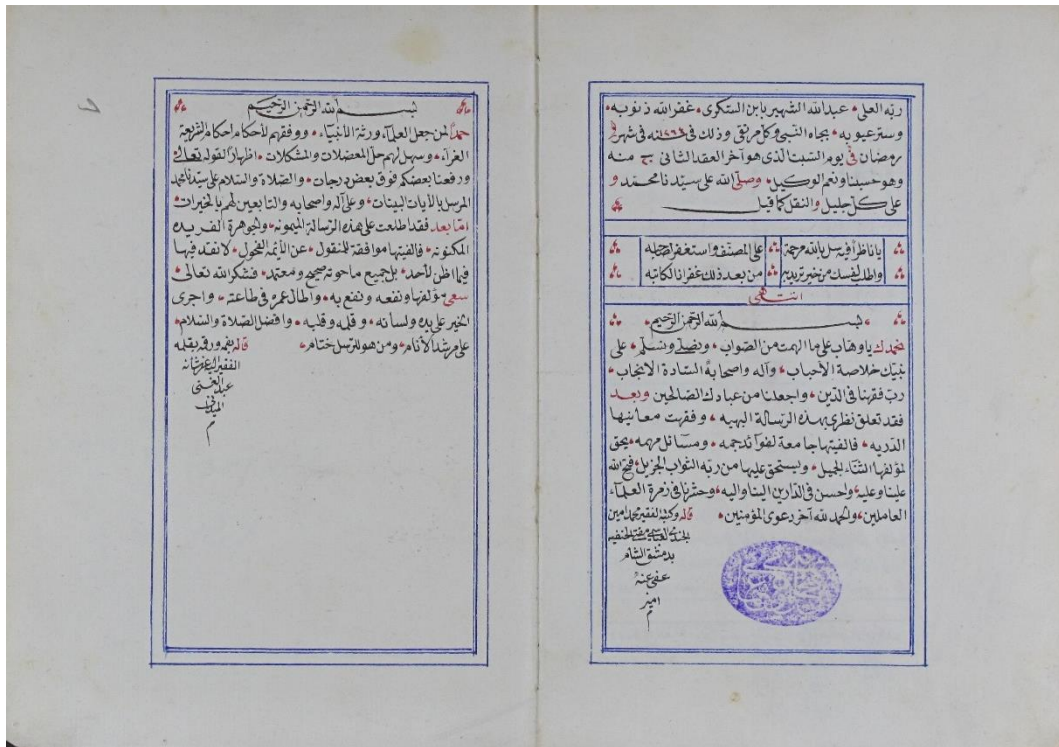 ربه العلى عبد الله الشهير بابن السكرى غفر الله ذنوبه
وستر عيوبه بجاه النبى وكل مرتقى وذلك فى سنه فى شهر
رمضان فى يوم السبت الذى هو آخر العقد الثانى منه
وهو حسبنا ونعم الوكيل وصلى الله على سيدنا محمد و
على كل جليل والنقل كما قيل
يا ناظرا فيه سل بالله مرحمة على المصنف واستغفر لصاحبه
واطلب لنفسك من خير تريد به من بعد ذلك غفرانا لكاتبه
انتهى
بسم الله الرحمن الرحيم
نحمدك يا وهاب على ما الهمت من الصواب ونصلى ونسلم على
نبيك خلاصة الأحباب وآله واصحابه السادة الانجاب
رب فقهنا فى الدين واجعلنا من عبادك الصالحين وبعد
فقد تعلق نظرى بهذه الرسالة البهيه وفقهت معانيها
الدريه فالفيتها جامعة لفوائد جمه ومسائل مهمه يحق
لمؤلفها الثناء الجميل ويستحق عليها من ربه الثواب الجزيل فتح الله
علينا وعليه واحسن فى الدارين الينا واليه وحشرنا فى زمرة العلماء
العاملين والحمد لله آخر دعوى المؤمنين قاله وكتبه الفقير محمد امين
الجندى العباسى مفتى الحنفيه
بدمشق الشام
عفى عنه
امين
م
بسم الله الرحمن الرحيم
حمدا لمن جعل العلماء ورثة الانبياء ووفقهم لأحكام احكام الشريعة
الغراء وسهل لهم حل المعضلات والمشكلات اظهارا لقوله تعالى
ورفعنا بعضكم فوق بعض درجات والصلاة والسلام على سيدنا محمد
المرسل بالآيات البينات وعلى آله واصحابه والتابعين لهم بالخيرات
اما بعد فقد اطلعت على هذه الرسالة الميمونه والجوهرة الفريده
المكنونه فالفيتها موافقة للمنقول عن الأئمه الفحول لا نقد فيها
فيما اظن لأحد بل جميع ما حوته صحيح ومعتمد فشكر الله تعالى
سعى مؤلفها ونفعه ونفع به واطال عمره فى طاعته واجرى
الخير على يده ولسانه وقلمه وقلبه وافضل الصلاة والسلام
على مرشد الأنام ومن هو للرسل ختام قاله بفمه ورقمه بقلمه
الفقير اليه عز شانه
عبد الغنى
الميدانى
م